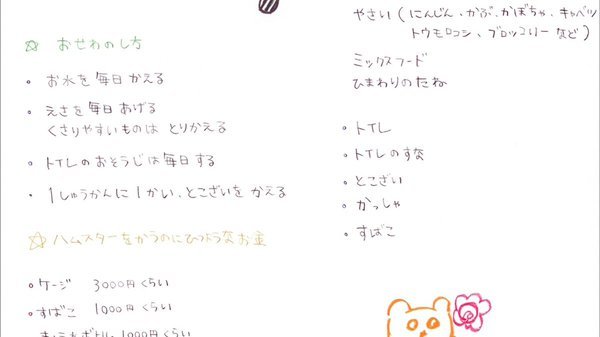 ☆ おせわのし方
・お水を毎日かえる
・えさを毎日あげる
くさりやすいものは とりかえる
・トイレのおそうじは毎日する
・1しゅうかんに1かい、とこざいをかえる
☆ ハムスターをかうのにひつようなお金
・ケージ 3000円くらい
・すばこ 1000円くらい
1000円くらい
やさい(にんじん、かぶ、かぼちゃ、キャベツ
トウモロコシ、ブロッコリーなど)
ミックスフード
ひまわりのたね
・トイレ
・トイレのすな
・とこざい
・かっしゃ
・すばこ